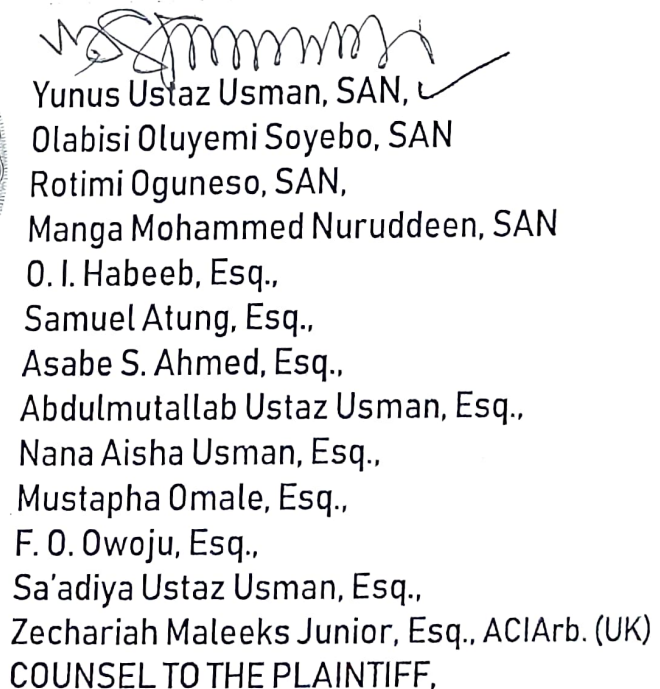 Yunus Ustaz Usman, SAN,
Olabisi Oluyemi Soyebo, SAN
Rotimi Oguneso, SAN,
Manga Mohammed Nuruddeen, SAN
O. I. Habeeb, Esq.,
Samuel Atung, Esq.,
Asabe S. Ahmed, Esq.,
Abdulmutallab Ustaz Usman, Esq.,
Nana Aisha Usman, Esq.,
Mustapha Omale, Esq.,
F. O. Owoju, Esq.,
Sa'adiya Ustaz Usman, Esq.,
Zechariah Maleeks Junior, Esq., ACIArb. (UK)
COUNSEL TO THE PLAINTIFF,